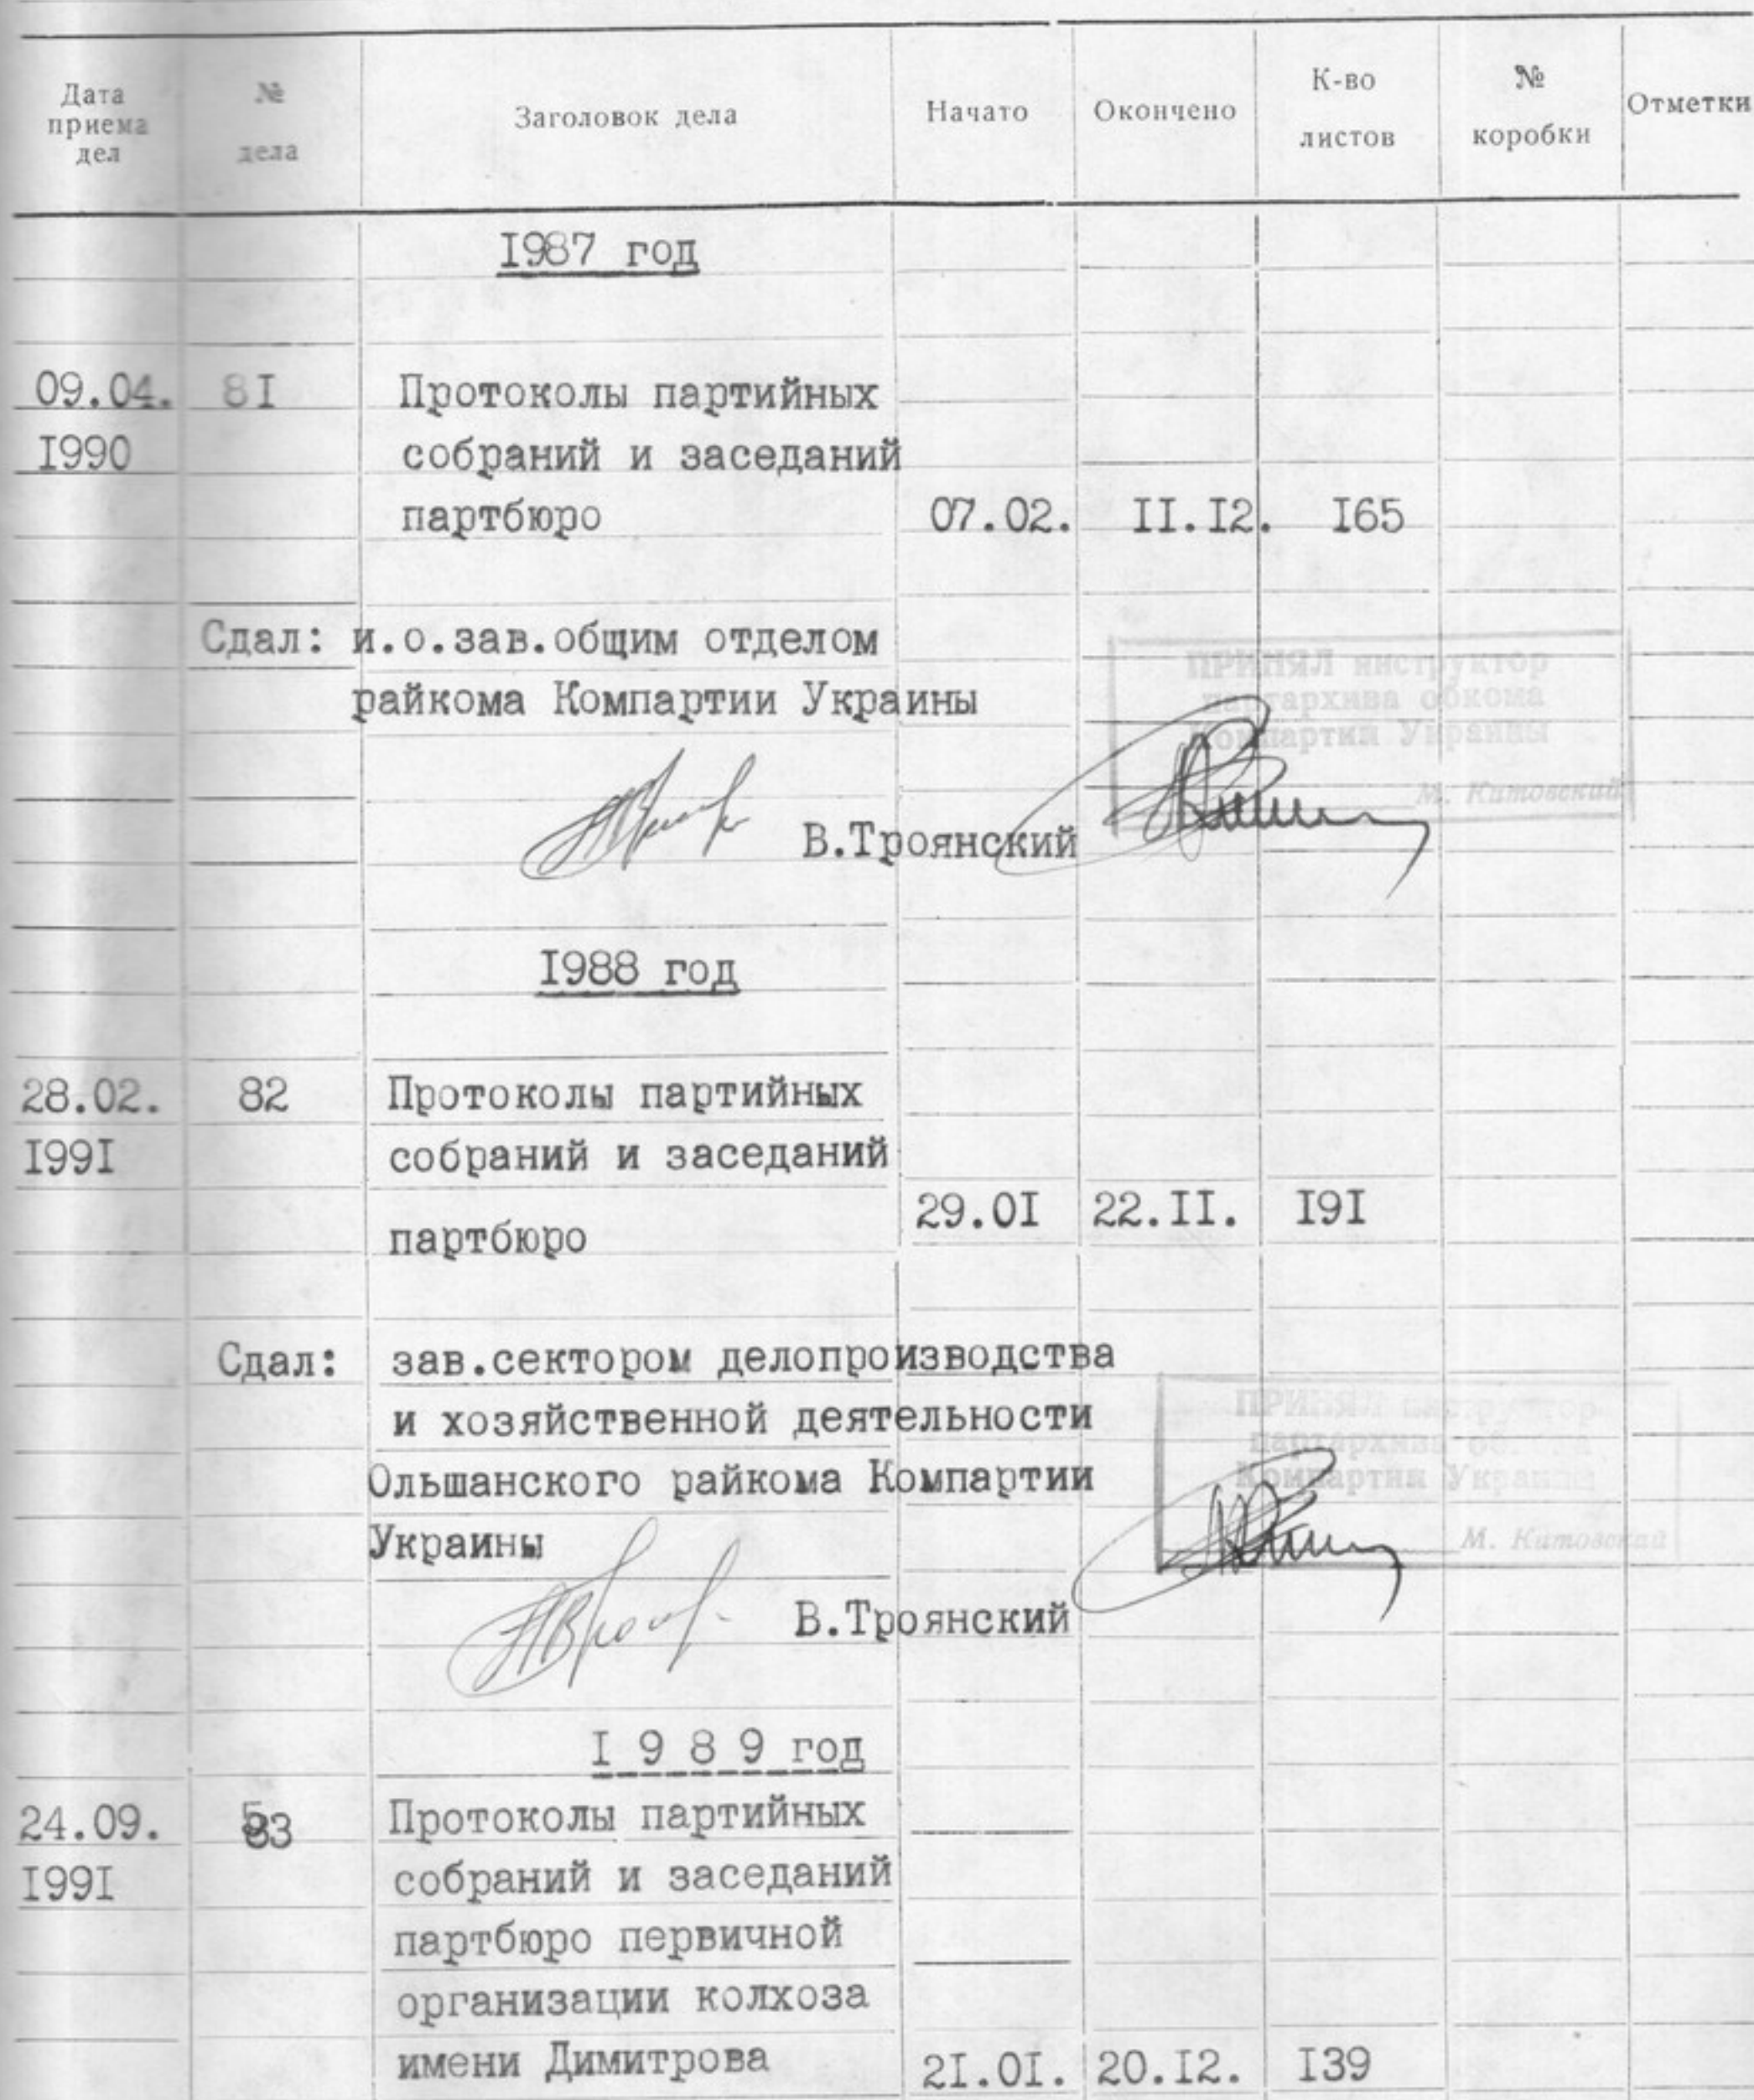 Дата приема дел № дела Заголовок дела Начато Окончено К-во листов № коробки Отметки
I987 год
09.04. 8I Протоколы партийных
I990 собраний и заседаний
партбюро 07.02. II.I2. I65
Сдал: и.о.зав.общим отделом
райкома Компартии Украины
ПРИНЯЛ инструктор
партархива обкома
Компартии Украины
М. Китовский
В.Троянский
I988 год
28.02. 82 Протоколы партийных
I99I собраний и заседаний
партбюро 29.0I 22.II. I9I
Сдал: зав.сектором делопроизводства
и хозяйственной деятельности
Ольшанского райкома Компартии
Украины
ПРИНЯЛ инструктор
партархива обкома
Компартии Украины
М. Китовский
В.Троянский
I 9 8 9 год
24.09. 83 Протоколы партийных
I99I собраний и заседаний
партбюро первичной
организации колхоза
имени Димитрова 2I.0I. 20.I2. I39